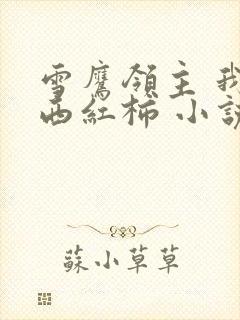 雪鹰領主 我
西紅柿 小說
蘇小草草